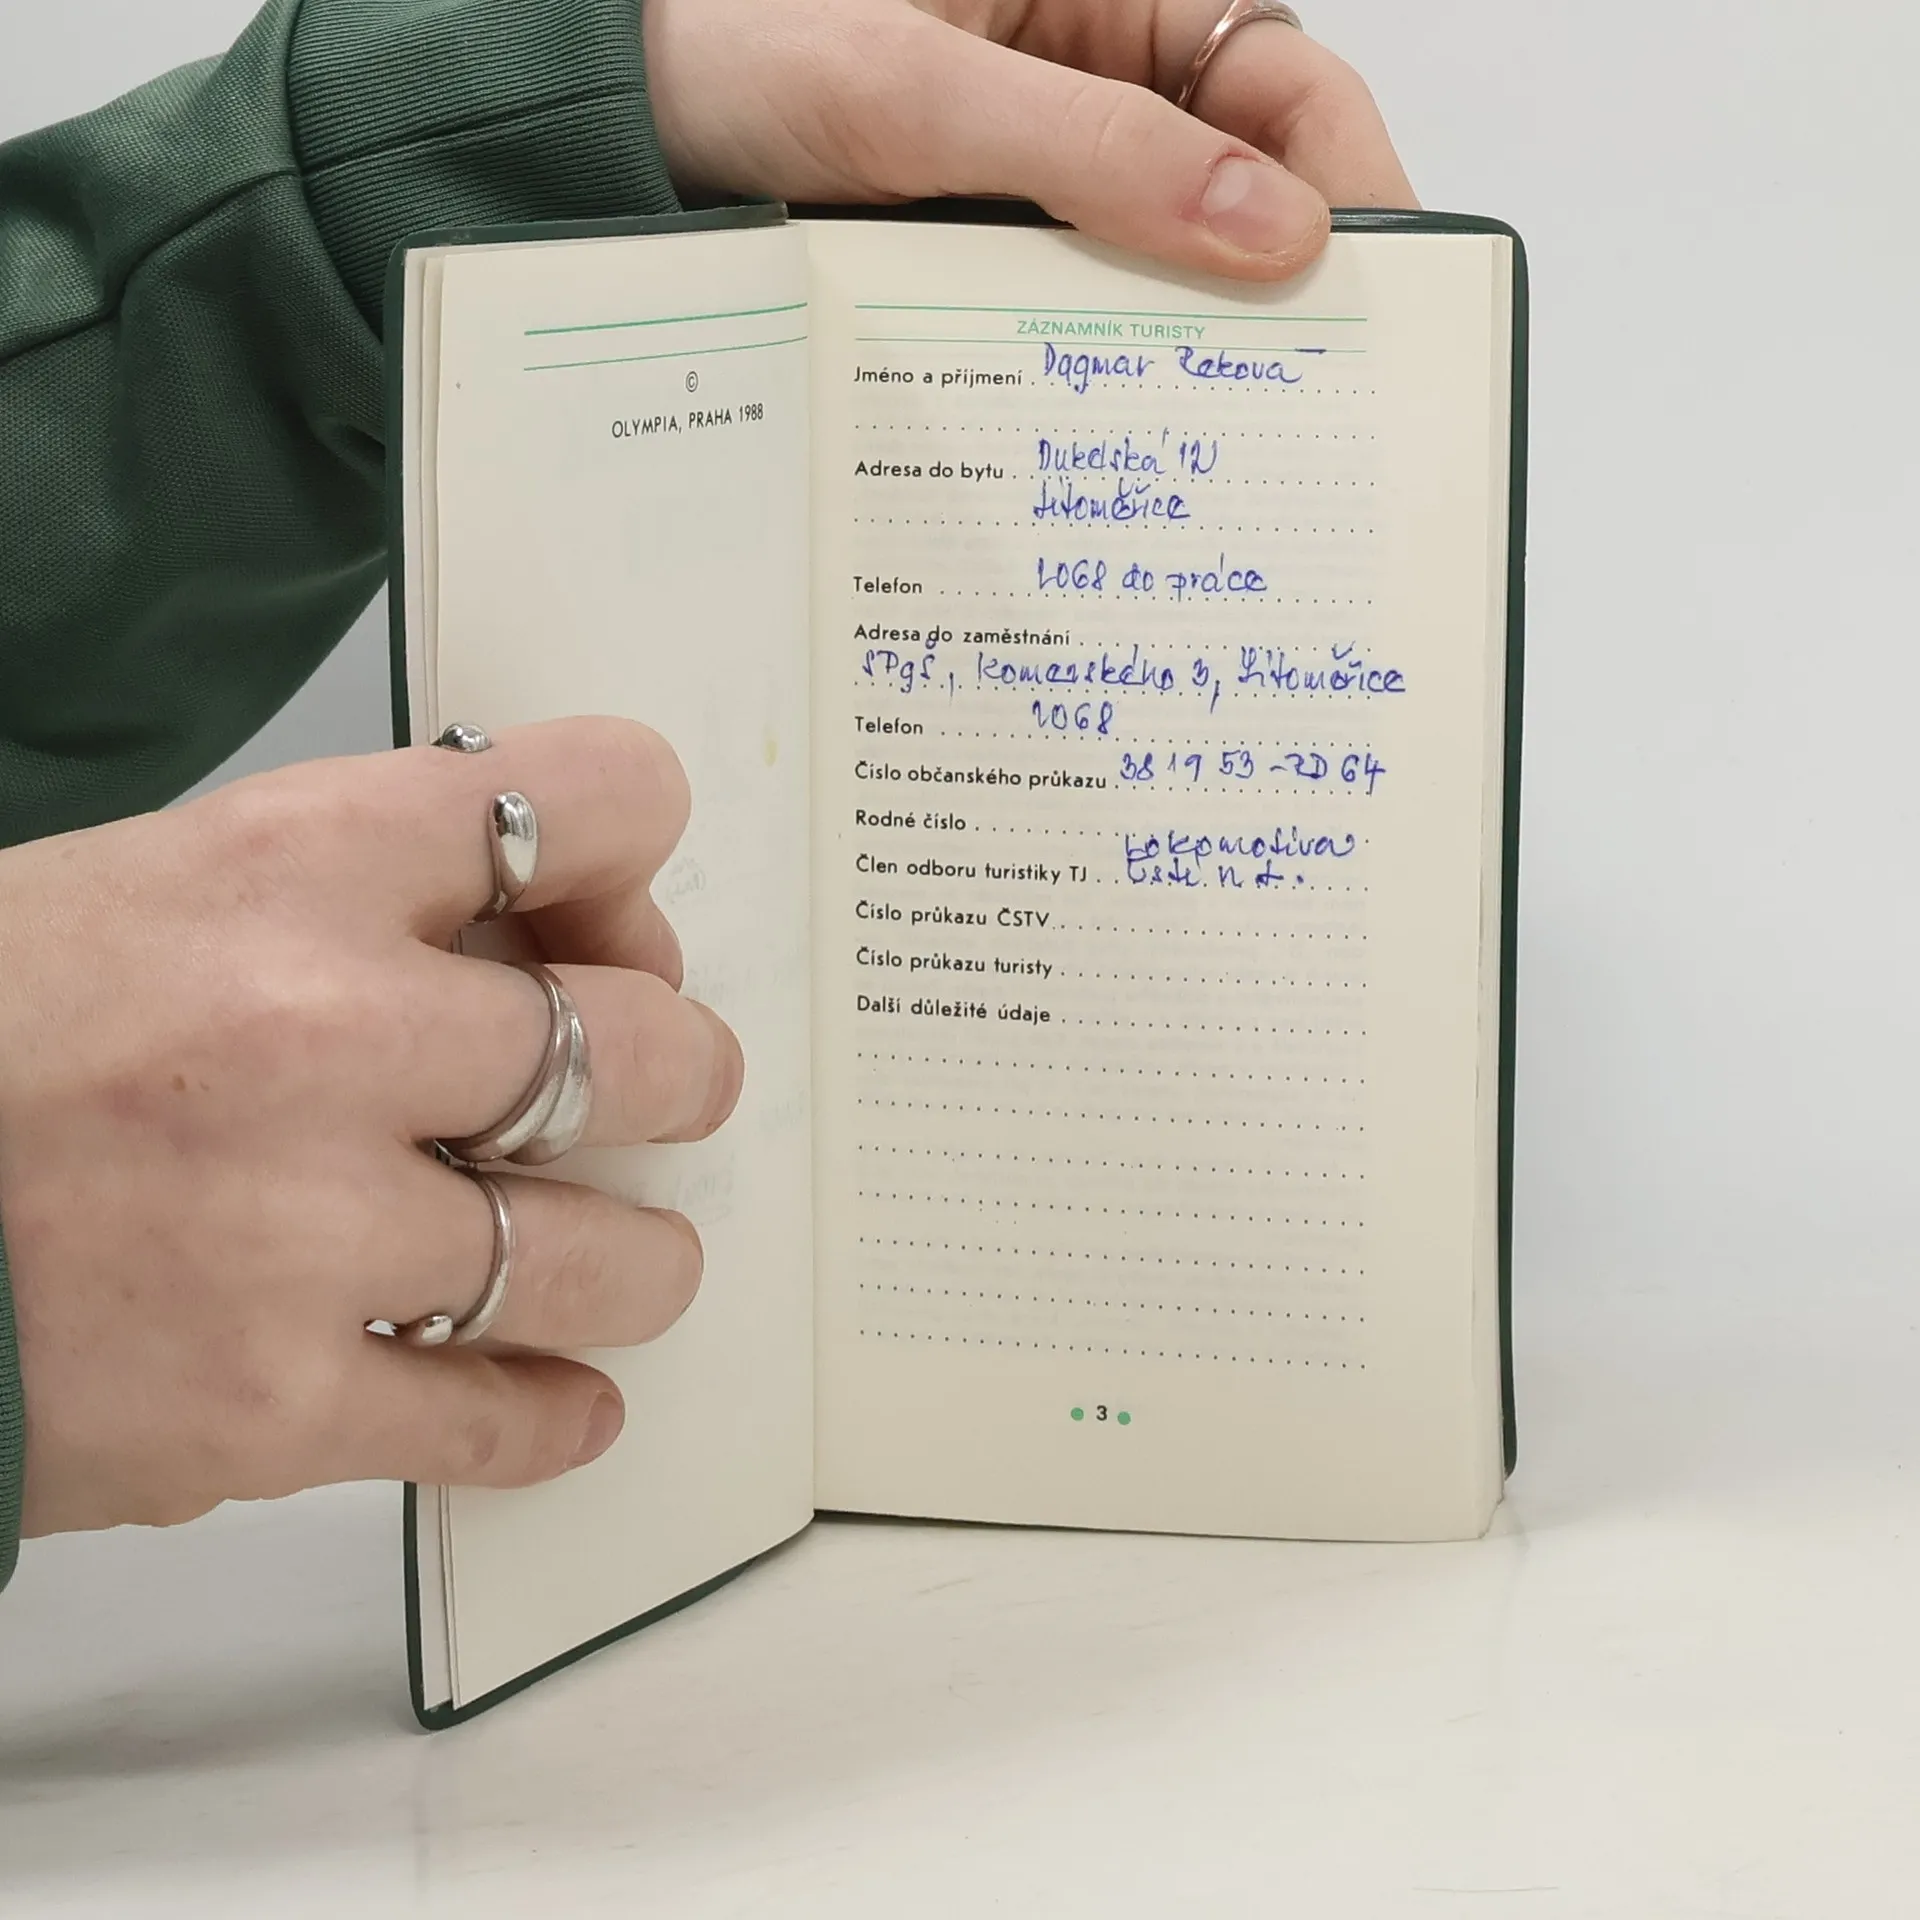 ©
OLYMPIA, PRAHA 1988
ZÁZNAMNÍK TURISTY
Jméno a příjmení Dagmar
Adresa do bytu Dukelská 12
Litoměřice
Telefon 2068 do práce
Adresa do zaměstnání
SPgŠ, Komenského 3, Litoměřice
Telefon 2068
Číslo občanského průkazu 381953 - ZD 64
Rodné číslo
Lokomotiva
Člen odboru turistiky TJ Ústí n. L.
Číslo průkazu ČSTV
Číslo průkazu turisty
Další důležité údaje
3